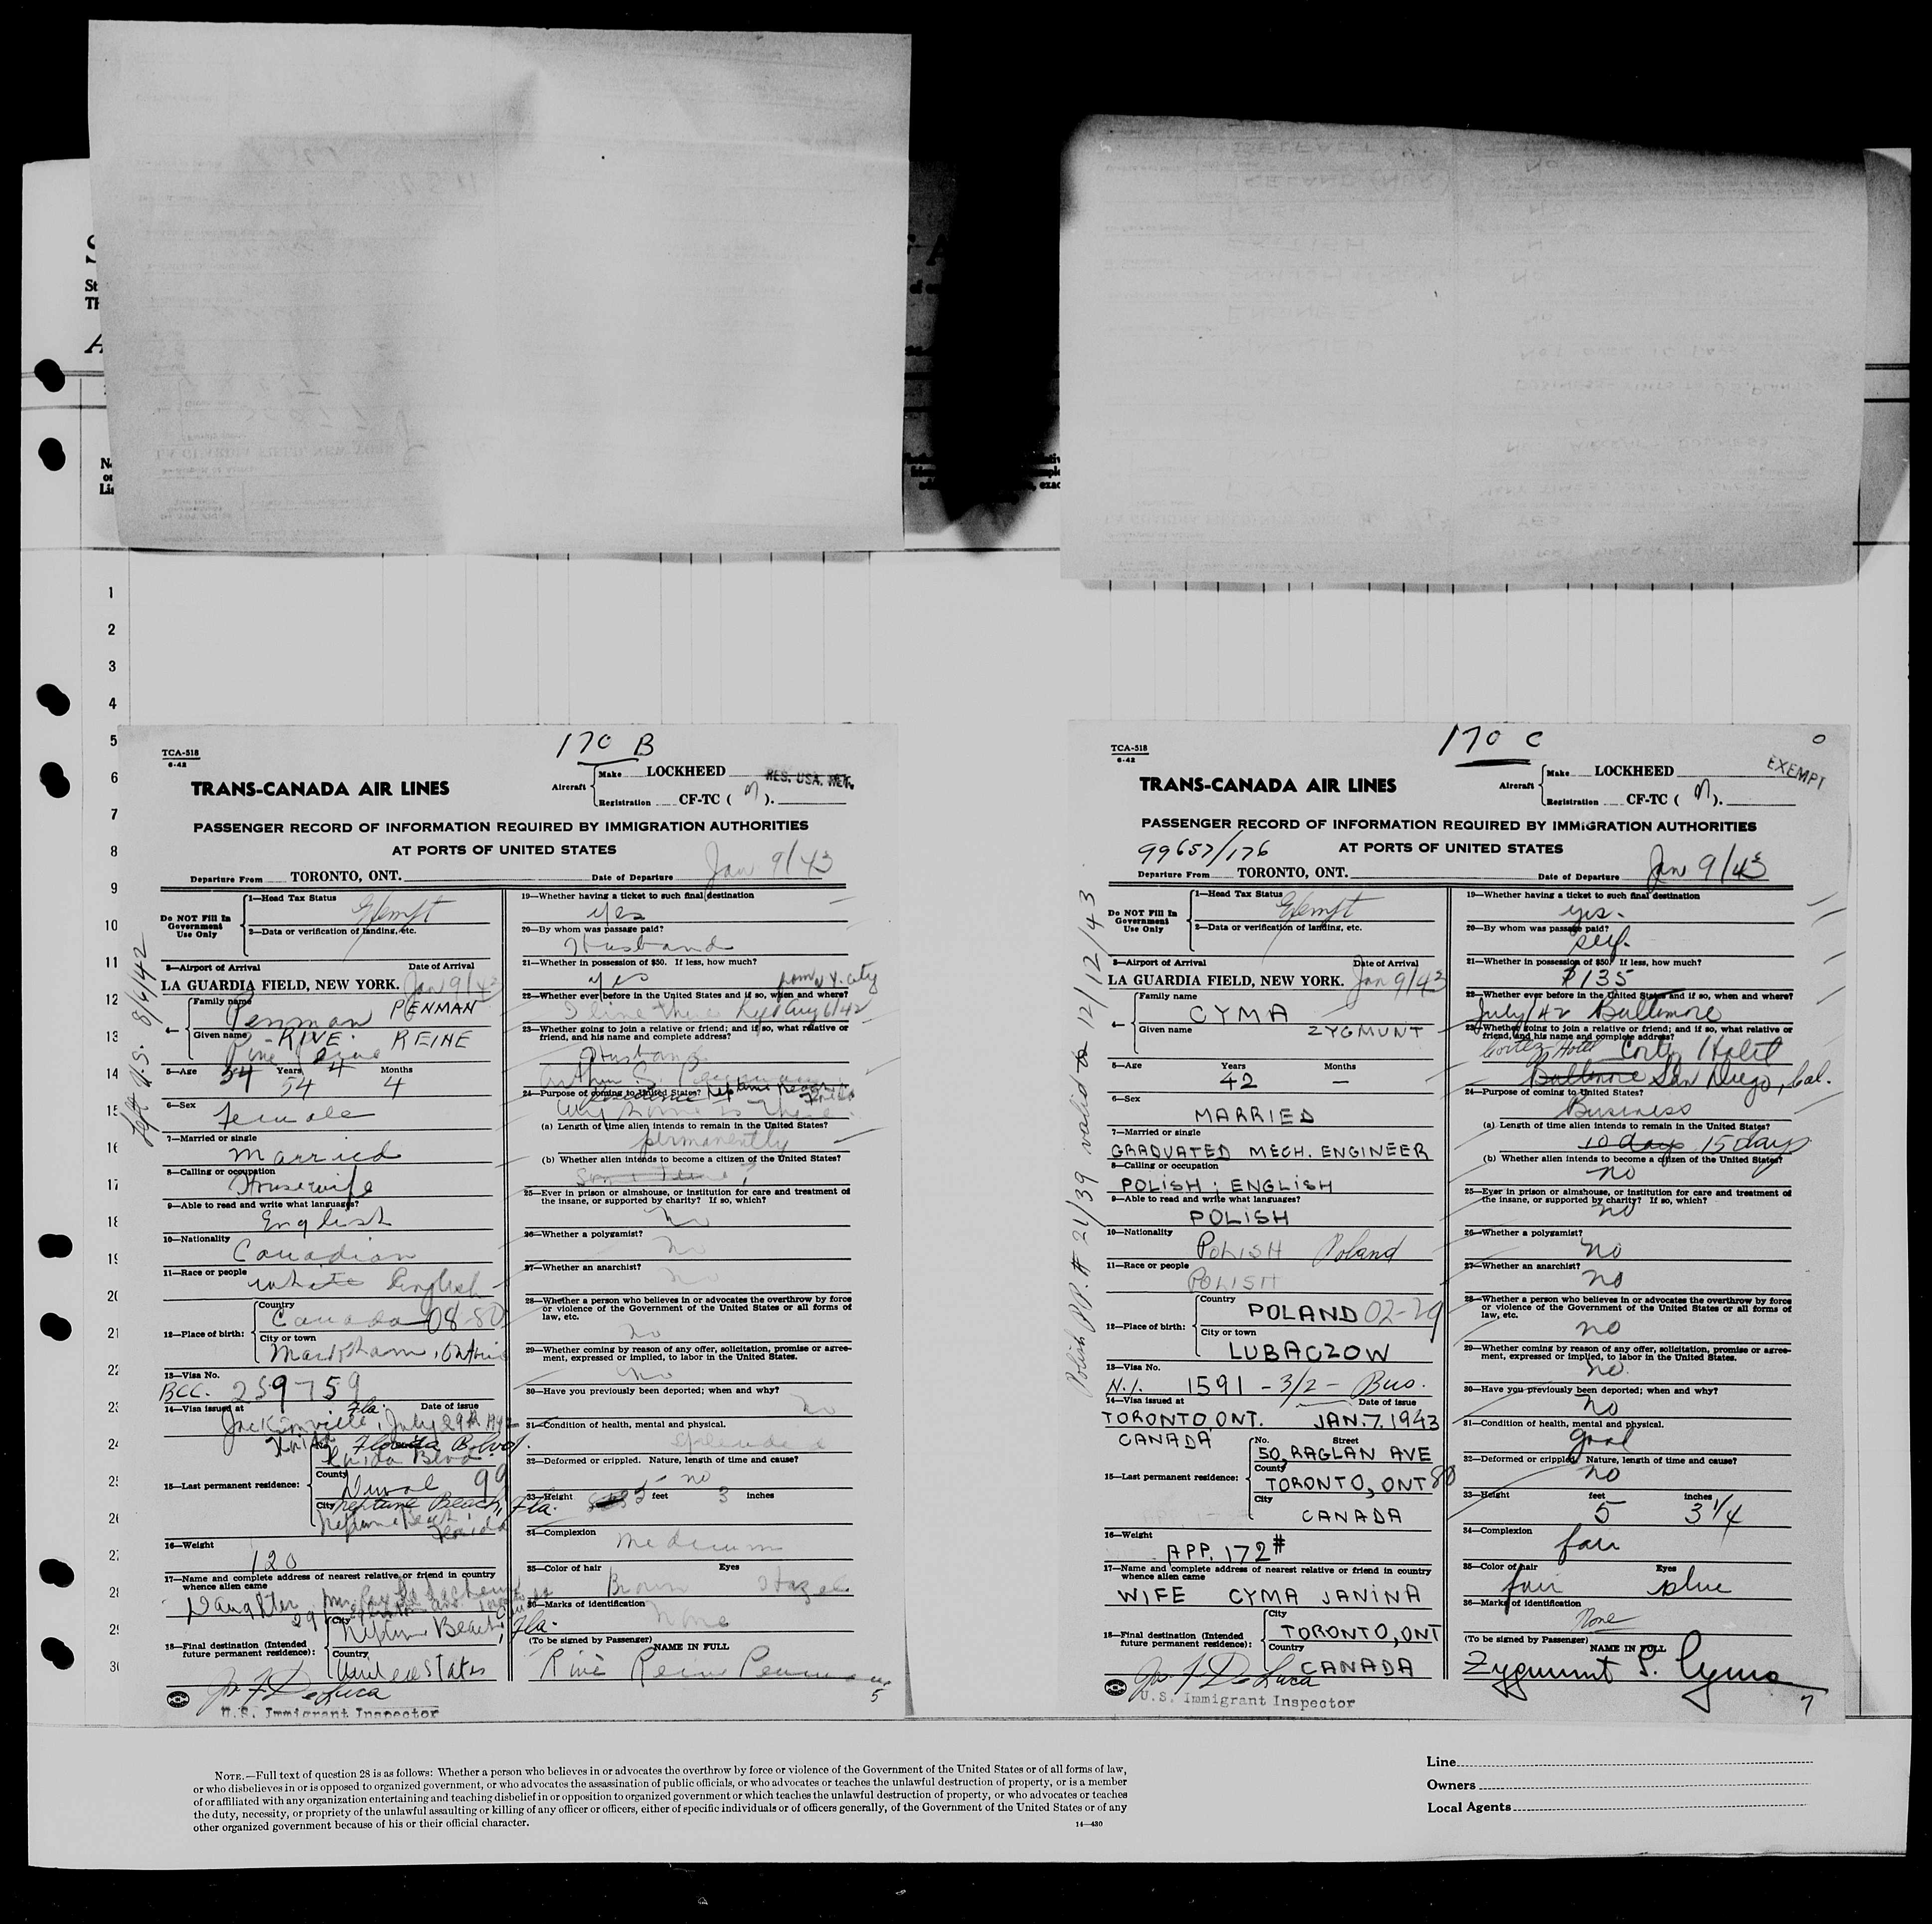 1
2
3
4
5
6
7
8
9
10
11
12
13
14
15
16
17
18
19
20
21
22
23
24
25
26
27
28
29
30
170 B
TCA-518
6-42
TRANS-CANADA AIR LINES
Aircraft
Make LOCKHEED
RES. USA. RET.
Registration CF-TC ( ).
PASSENGER RECORD OF INFORMATION REQUIRED BY IMMIGRATION AUTHORITIES
AT PORTS OF UNITED STATES
Departure From TORONTO, ONT. Date of Departure Jan 9/43
Left U.S. 8/4/42
Do NOT Fill In Government Use Only
1—Head Tax Status Exempt
2—Data or verification of landing, etc.
3—Airport of Arrival Date of Arrival
LA GUARDIA FIELD, NEW YORK. Jan 9/43
4— Family name Penman PENMAN
Given name RIVE REINE
5—Age 54 Years 4 Months
54 4
6—Sex
Female
7—Married or single
Married
8—Calling or occupation
Housewife
9—Able to read and write what languages?
English
10—Nationality
Canadian
11—Race or people
white English
12—Place of birth:
Country
Canada 08-80
City or town
Markham, Ontario
13—Visa No.
BCC. 259759
14—Visa issued at Fla. Date of issue
Jacksonville, July 29th 1942
15—Last permanent residence:
Florida Blvd.
County
Duval 99
City Neptune Beach, Fla.
Neptune Beach, Florida
16—Weight
120
17—Name and complete address of nearest relative or friend in country
whence alien came
Daughter Mrs.
18—Final destination (Intended
future permanent residence):
City
Neptune Beach, Fla.
Country
United States
Jos. F. DeLuca
U.S. Immigrant Inspector
19—Whether having a ticket to such final destination
yes
20—By whom was passage paid?
Husband
21—Whether in possession of $50. If less, how much?
yes from N.Y. City
22—Whether ever before in the United States and if so, when and where?
I live there Left Aug 6/42
23—Whether going to join a relative or friend; and if so, what relative or
friend, and his name and complete address?
Husband
24—Purpose of coming to United States?
My home is there.
(a) Length of time alien intends to remain in the United States?
permanently
(b) Whether alien intends to become a citizen of the United States?
25—Ever in prison or almshouse, or institution for care and treatment of
the insane, or supported by charity? If so, which?
No
26—Whether a polygamist?
No
27—Whether an anarchist?
No
28—Whether a person who believes in or advocates the overthrow by force
or violence of the Government of the United States or all forms of
law, etc.
No
29—Whether coming by reason of any offer, solicitation, promise or agree-
ment, expressed or implied, to labor in the United States.
No
30—Have you previously been deported; when and why?
No
31—Condition of health, mental and physical.
Splendid
32—Deformed or crippled. Nature, length of time and cause?
no
33—Height 5 feet 3 inches
34—Complexion
Medium
35—Color of hair Eyes
Brown Hazel
36—Marks of identification
None
(To be signed by Passenger) NAME IN FULL
Rivé Reine Penman
5
170 C
TCA-518
6-42
TRANS-CANADA AIR LINES
Aircraft
Make LOCKHEED
EXEMPT
Registration CF-TC ( ).
PASSENGER RECORD OF INFORMATION REQUIRED BY IMMIGRATION AUTHORITIES
99657/176 AT PORTS OF UNITED STATES
Departure From TORONTO, ONT. Date of Departure Jan 9/43
Polish P.P. # 21/39 valid to 12/12/43
Do NOT Fill In Government Use Only
1—Head Tax Status Exempt
2—Data or verification of landing, etc.
3—Airport of Arrival Date of Arrival
LA GUARDIA FIELD, NEW YORK. Jan 9/43
4— Family name
CYMA
Given name ZYGMUNT
5—Age Years Months
42 —
6—Sex
MARRIED
7—Married or single
GRADUATED MECH. ENGINEER
8—Calling or occupation
POLISH ; ENGLISH
9—Able to read and write what languages?
POLISH
10—Nationality
POLISH Poland
11—Race or people
POLISH
12—Place of birth:
Country
POLAND 02-29
City or town
LUBACZOW
13—Visa No.
N.I. 1591 - 3/2 - Bus.
14—Visa issued at Date of issue
TORONTO, ONT. JAN. 7. 1943
CANADA
15—Last permanent residence:
No. Street
50, RAGLAN AVE
County
TORONTO, ONT 80
City
CANADA
16—Weight
APP. 172#
17—Name and complete address of nearest relative or friend in country
whence alien came
WIFE CYMA JANINA
18—Final destination (Intended
future permanent residence):
City
TORONTO, ONT
Country
CANADA
Jos. F. DeLuca
U.S. Immigrant Inspector
19—Whether having a ticket to such final destination
yes.
20—By whom was passage paid?
self.
21—Whether in possession of $50. If less, how much?
$135
22—Whether ever before in the United States and if so, when and where?
July/42 Baltimore
23—Whether going to join a relative or friend; and if so, what relative or
friend, and his name and complete address?
Cortez Hotel Cortez Hotel
Baltimore San Diego, Cal.
24—Purpose of coming to United States?
Business
(a) Length of time alien intends to remain in the United States?
10 days 15 days
(b) Whether alien intends to become a citizen of the United States?
no
25—Ever in prison or almshouse, or institution for care and treatment of
the insane, or supported by charity? If so, which?
no
26—Whether a polygamist?
no
27—Whether an anarchist?
no
28—Whether a person who believes in or advocates the overthrow by force
or violence of the Government of the United States or all forms of
law, etc.
no
29—Whether coming by reason of any offer, solicitation, promise or agree-
ment, expressed or implied, to labor in the United States.
no.
30—Have you previously been deported; when and why?
no
31—Condition of health, mental and physical.
good
32—Deformed or crippled. Nature, length of time and cause?
no
33—Height feet inches
5 3 1/4
34—Complexion
fair
35—Color of hair Eyes
fair blue
36—Marks of identification
None
(To be signed by Passenger) NAME IN FULL
Zygmunt S. Cyma
7
NOTE.—Full text of question 28 is as follows: Whether a person who believes in or advocates the overthrow by force or violence of the Government of the United States or of all forms of law,
or who disbelieves in or is opposed to organized government, or who advocates the assassination of public officials, or who advocates or teaches the unlawful destruction of property, or is a member
of or affiliated with any organization entertaining and teaching disbelief in or opposition to organized government or which teaches the unlawful destruction of property, or who advocates or teaches
the duty, necessity, or propriety of the unlawful assaulting or killing of any officer or officers, either of specific individuals or of officers generally, of the Government of the United States or of any
other organized government because of his or their official character.
14—430
Line
Owners
Local Agents